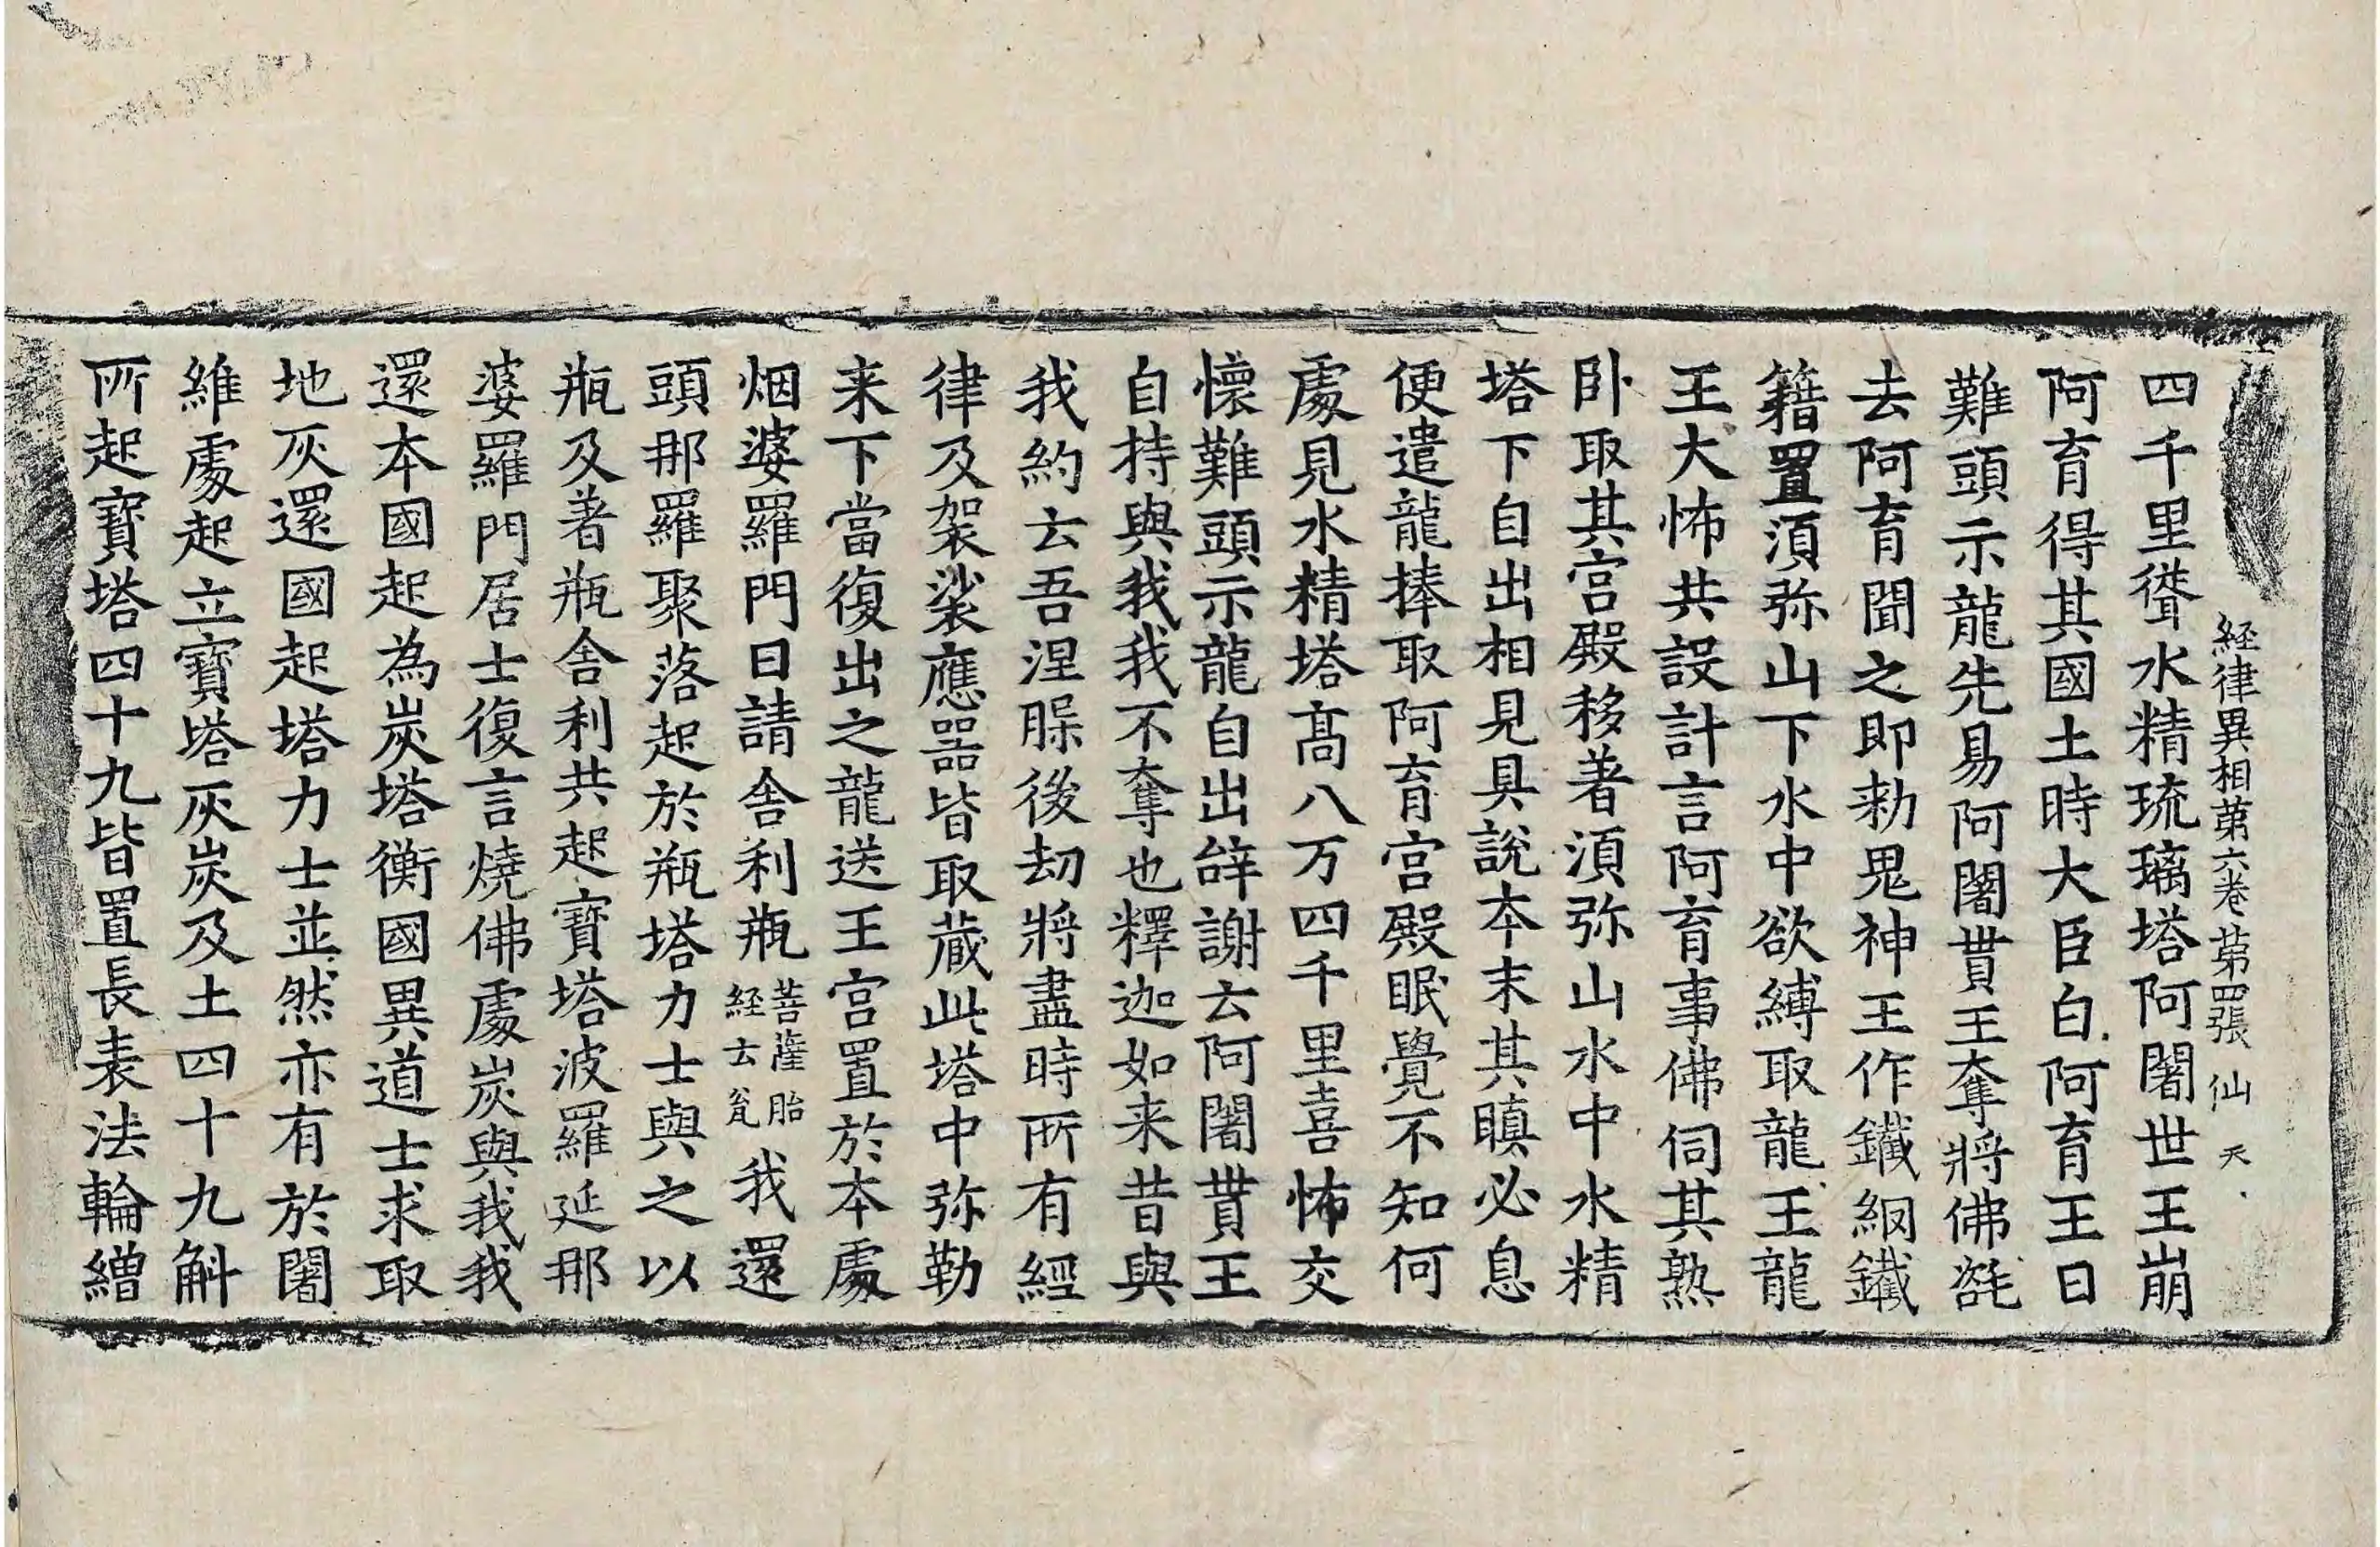 経律異相第六卷 第四張 仙 天
四千里從水精琉璃塔阿闍世王崩
阿育得其國土時大臣白阿育王曰
難頭示龍先易阿闍貰王奪將佛髭
去阿育聞之即勑鬼神王作鐵網鐵
籍置須弥山下水中欲縛取龍王龍
王大怖共設計言阿育事佛伺其熟
卧取其宫殿移著須弥山水中水精
塔下自出相見具說本末其瞋必息
便遣龍捧取阿育宫殿眠覺不知何
處見水精塔高八万四千里喜怖交
懷難頭示龍自出辝謝云阿闍貰王
自持與我我不奪也釋迦如来昔與
我約云吾涅𦙁後劫將盡時所有經
律及袈裟應噐皆取蔵此塔中弥勒
来下當復出之龍送王宫置於本處
烟婆羅門曰請舎利瓶菩薩胎経云瓮我還
頭那羅聚落起於瓶塔力士與之以
瓶及著瓶舎利共起寶塔波羅延那
婆羅門居士復言燒佛處炭與我我
還本國起為炭塔衡國異道士求取
地灰還國起塔力士並然亦有於闍
維處起立寶塔灰炭及土四十九斛
所起寶塔四十九皆置長表法輪繒